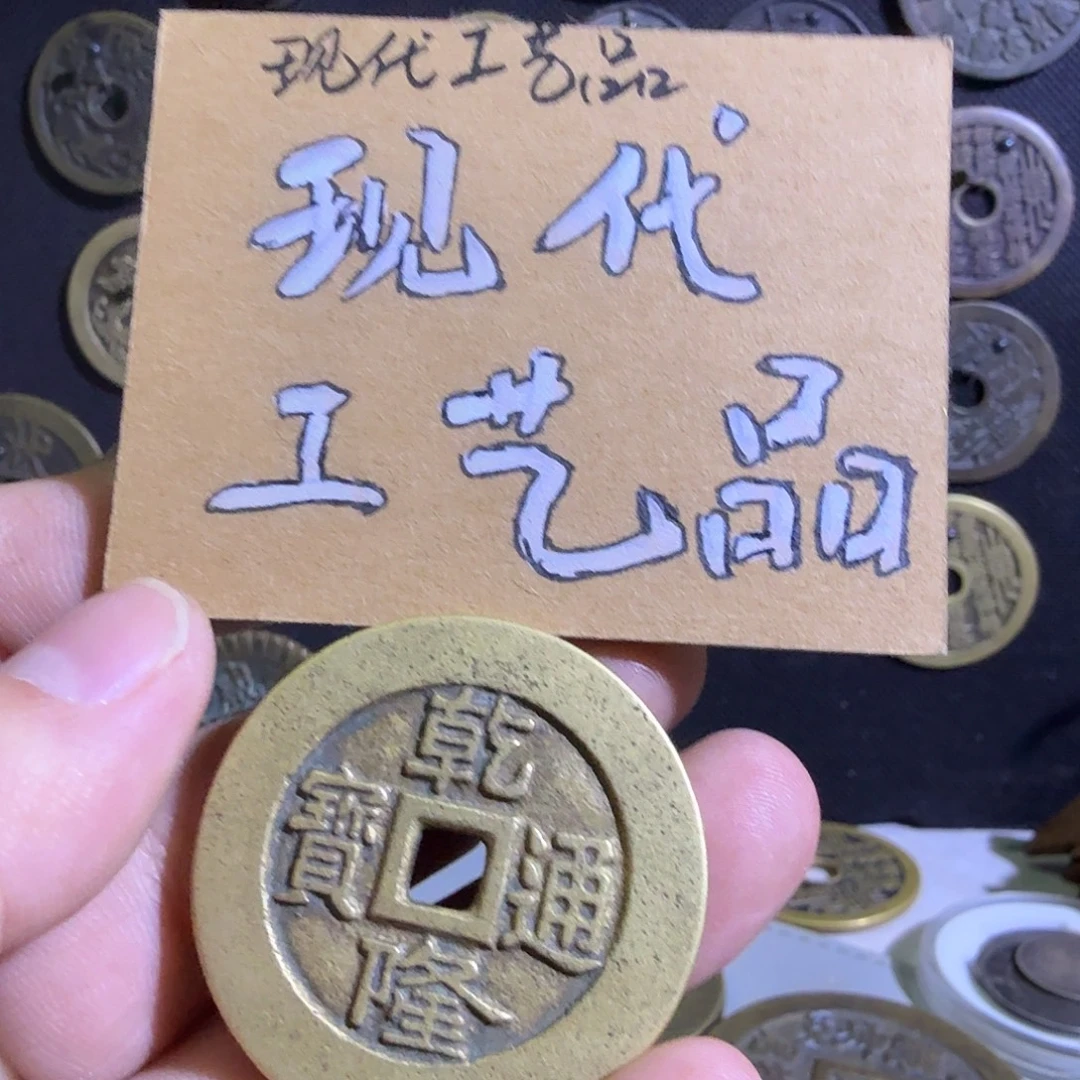 现代工艺品
现代
工艺品
乾隆通寶